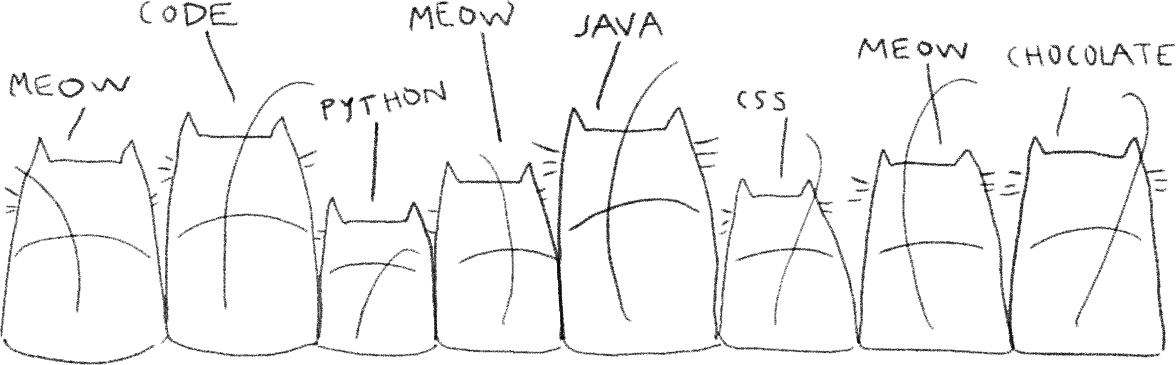 MEOW
CODE
PYTHON
MEOW
JAVA
CSS
MEOW
CHOCOLATE